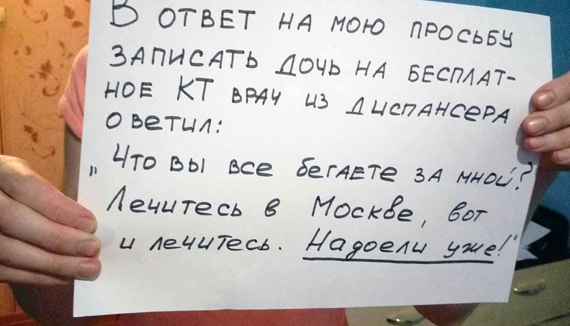 В ОТВЕТ НА МОЮ ПРОСЬБУ
ЗАПИСАТЬ ДОЧЬ НА БЕСПЛАТ-
НОЕ КТ ВРАЧ ИЗ ДИСПАНСЕРА
ОТВЕТИЛ:
„Что вы все бегаете за мной?
Лечитесь в Москве, вот
и лечитесь. Надоели уже!"